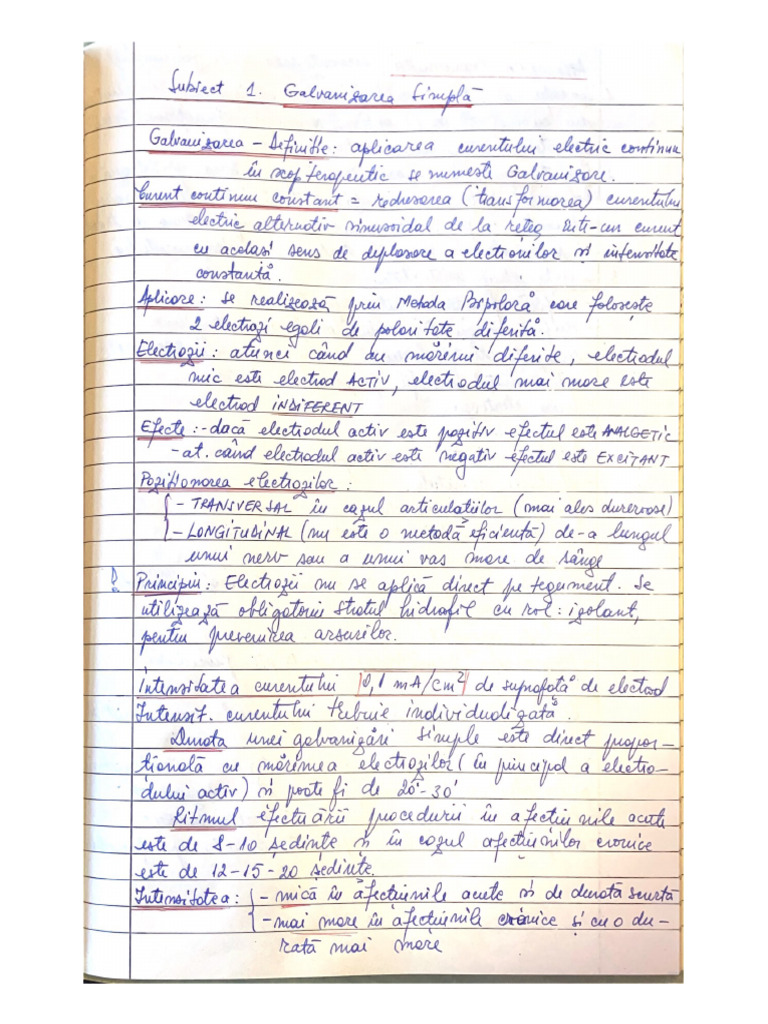 Subiect 1. Galvanizarea Simplă
Galvanizarea - Definitie: aplicarea curentului electric continuu
în scop terapeutic se numeste Galvanizare.
Curent continuu constant = redresarea (transformarea) curentului
electric alternativ sinusoidal de la retea într-un curent
cu acelasi sens de deplasare a electronilor si intensitate
constantă.
Aplicare: se realizează prin Metoda Bipolară care foloseste
2 electrozi egali de polaritate diferită.
Electrozii: atunci când au mărimi diferite, electrodul
mic este electrod ACTIV, electrodul mai mare este
electrod INDIFERENT
Efecte: - dacă electrodul activ este pozitiv efectul este ANALGETIC
- at. când electrodul activ este negativ efectul este EXCITANT
Pozitionarea electrozilor:
- TRANSVERSAL în cazul articulatiilor (mai ales dureroase)
- LONGITUDINAL (nu este o metodă eficientă) de-a lungul
unui nerv sau a unui vas mare de sânge
! Principiu: Electrozii nu se aplică direct pe tegument. Se
utilizează obligatoriu stratul hidrofil cu rol: izolant,
pentru prevenirea arsurilor.
Intensitatea curentului 0,1 mA/cm² de suprafată de electrod
Intensit. curentului trebuie individualizată.
Durata unei galvanizări simple este direct propor-
tională cu mărimea electrozilor (în principal a electro-
dului activ) si poate fi de 20'-30'
Ritmul efectuării procedurii în afectiunile acute
este de 8-10 sedinte si în cazul afectiunilor cronice
este de 12-15-20 sedinte.
Intensitatea: - mică în afectiunile acute si de durată scurtă
- mai mare în afectiunile cronice și cu o du-
rată mai mare